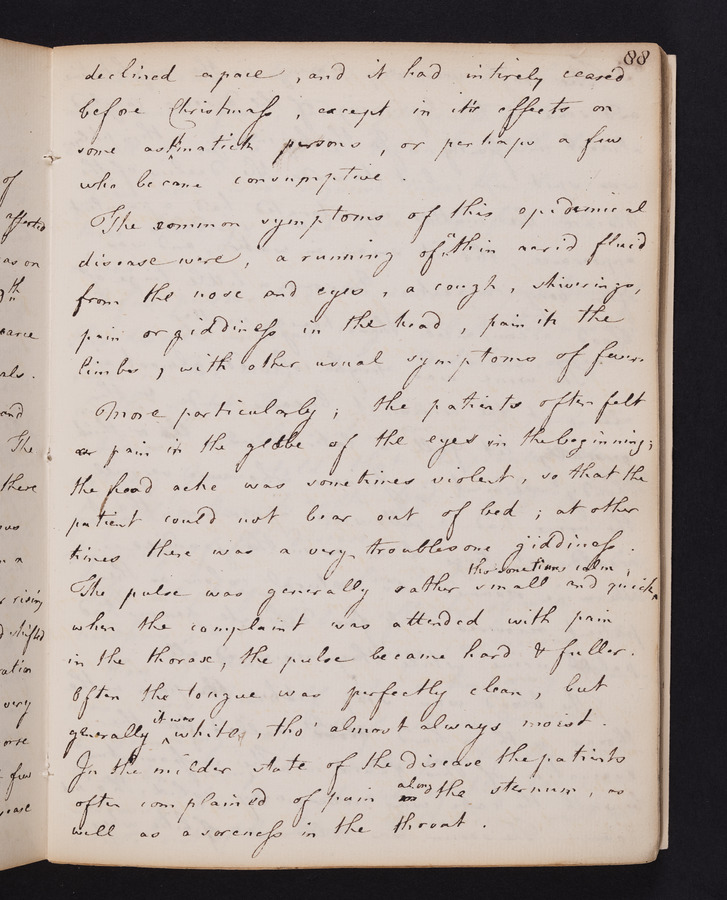 88
declined apace , and it had intirely ceased
before Christmass , except in it's effects on
some asthmatick persons , or perhaps a few
who became consumptive .
The common symptoms of this epidemical
disease were , a running of a thin acrid fluid
from the nose and eyes , a cough , shiverings,
pain or giddiness in the head , pain in the
limbs , with other usual symptoms of fever.
More particularly ; the patients often felt
a pain in the globe of the eyes in the beginning ;
the head ache was sometimes violent , so that the
patient could not bear out of bed ; at other
times there was a very troublesome giddiness .
tho' sometimes calm ;
The pulse was generally rather small and quick
when the complaint was attended with pain
in the thorax , the pulse became hard & fuller .
Often the tongue was perfectly clean , but
generally it was white , tho' almost always moist .
In the milder state of the disease the patients
often complained of pain along the sternum , as
well as a soreness in the throat .
of
affected
as on
th
earce
als .
and
The
there
was
n a
r rising
d shifted
ation
very
orse
few
ease